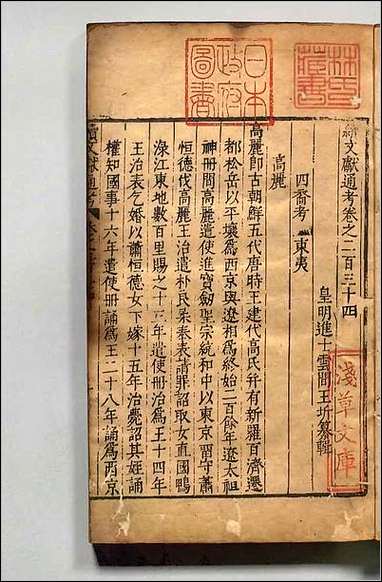 續文獻通考卷之二百三十四
皇明進士雲間王圻纂輯
四裔考 東夷
高麗
高麗即古朝鮮五代唐時王建代高氏并有新羅百濟遷
都松岳以平壤爲西京與遼相爲終始二百餘年遼太祖
神冊間高麗遣使進寶劍聖宗統和中以東京留守蕭
恒德伐高麗王治遣朴民柔奉表請罪詔取女直國鴨
淥江東地數百里賜之十三年遣使冊治爲王十四年
王治表乞婚以蕭恒德女下嫁十五年治薨詔其姪誦
權知國事十六年遣使冊誦爲王二十八年誦爲西京
續文獻通考
日本
政府
圖書
淺草文庫
林氏
藏書